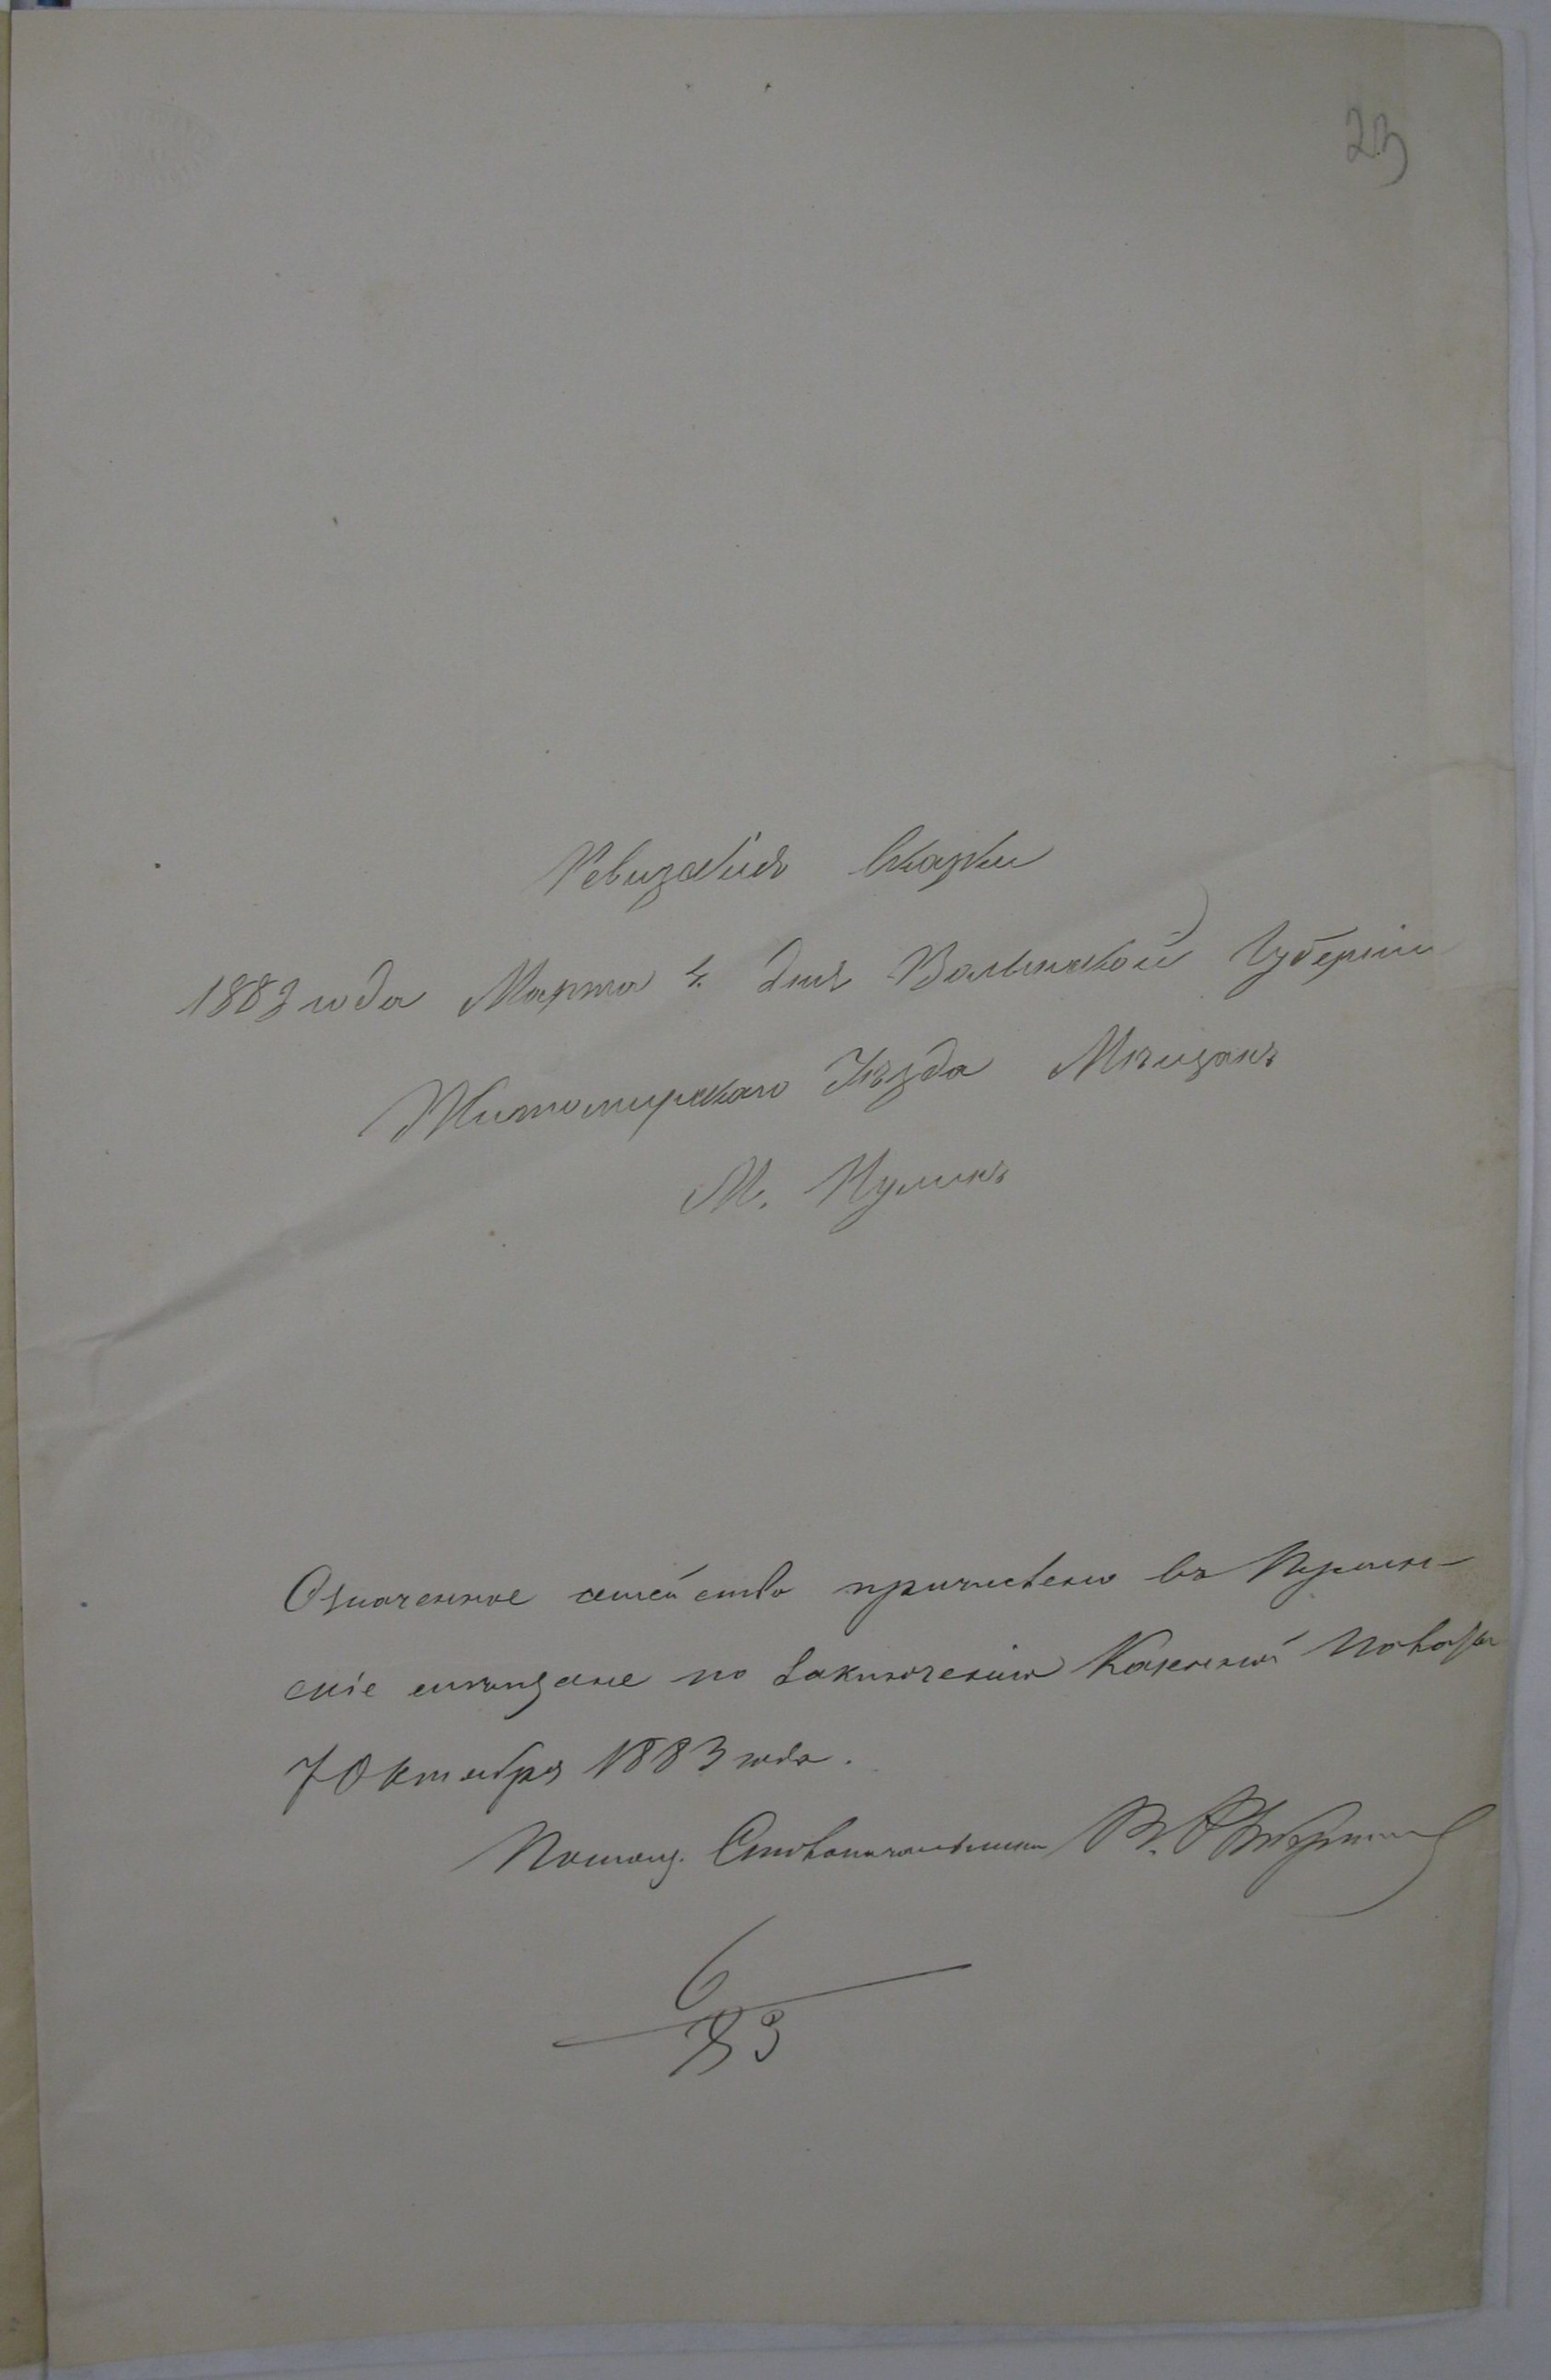 23
Ревизскія Сказки
1883 года Марта 4 дня Волынской Губерніи
Житомирскаго Уѣзда Мѣщанъ
М. Пулинъ
Означенное семейство причислено въ Пулин-
скіе мѣщане по заключенію Казенной Палаты
7 Октября 1883 года.
Помощ. Столоначальника В.
6
83